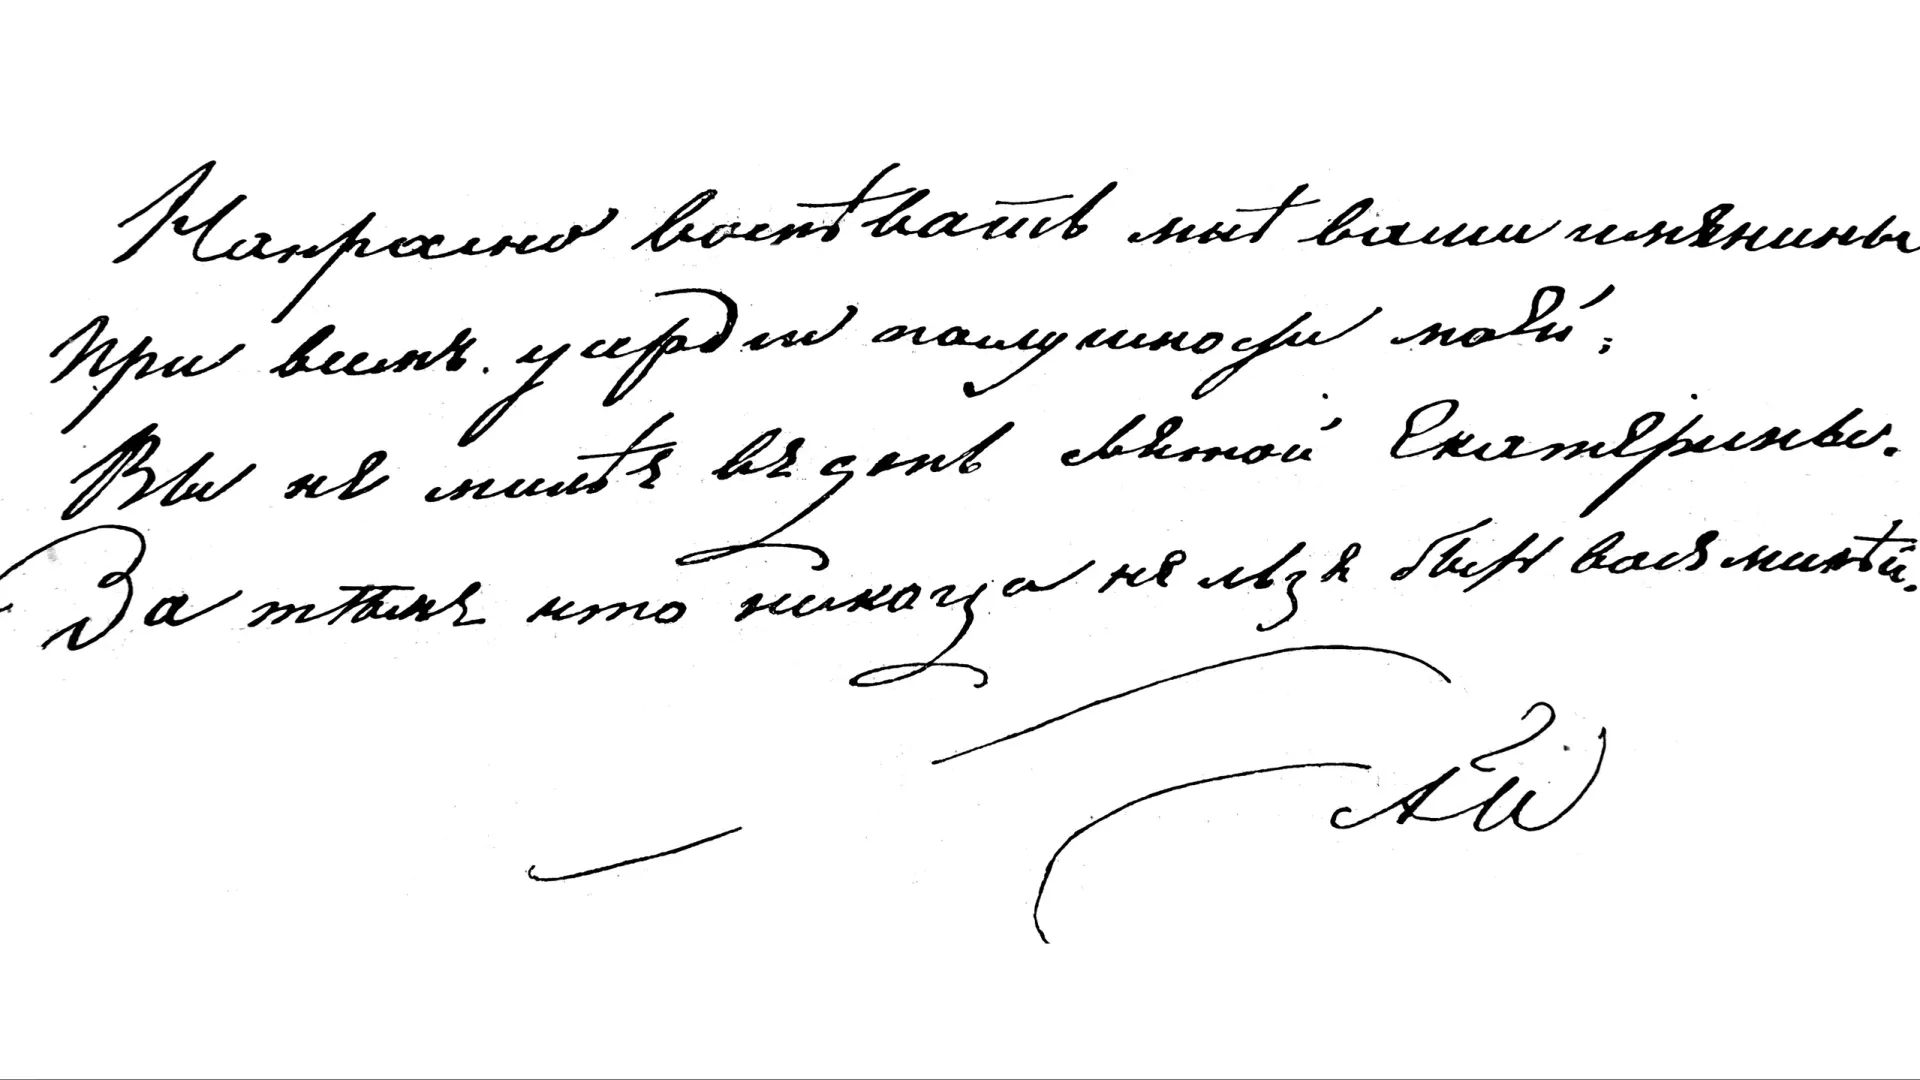 Напрасно воспѣвать мнѣ ваши имянины
При всемъ усердіи послушности моей;
Вы не милѣе въ день святой Екатерины.
За тѣмъ что никогда не льзя быть васъ милѣй.
АП